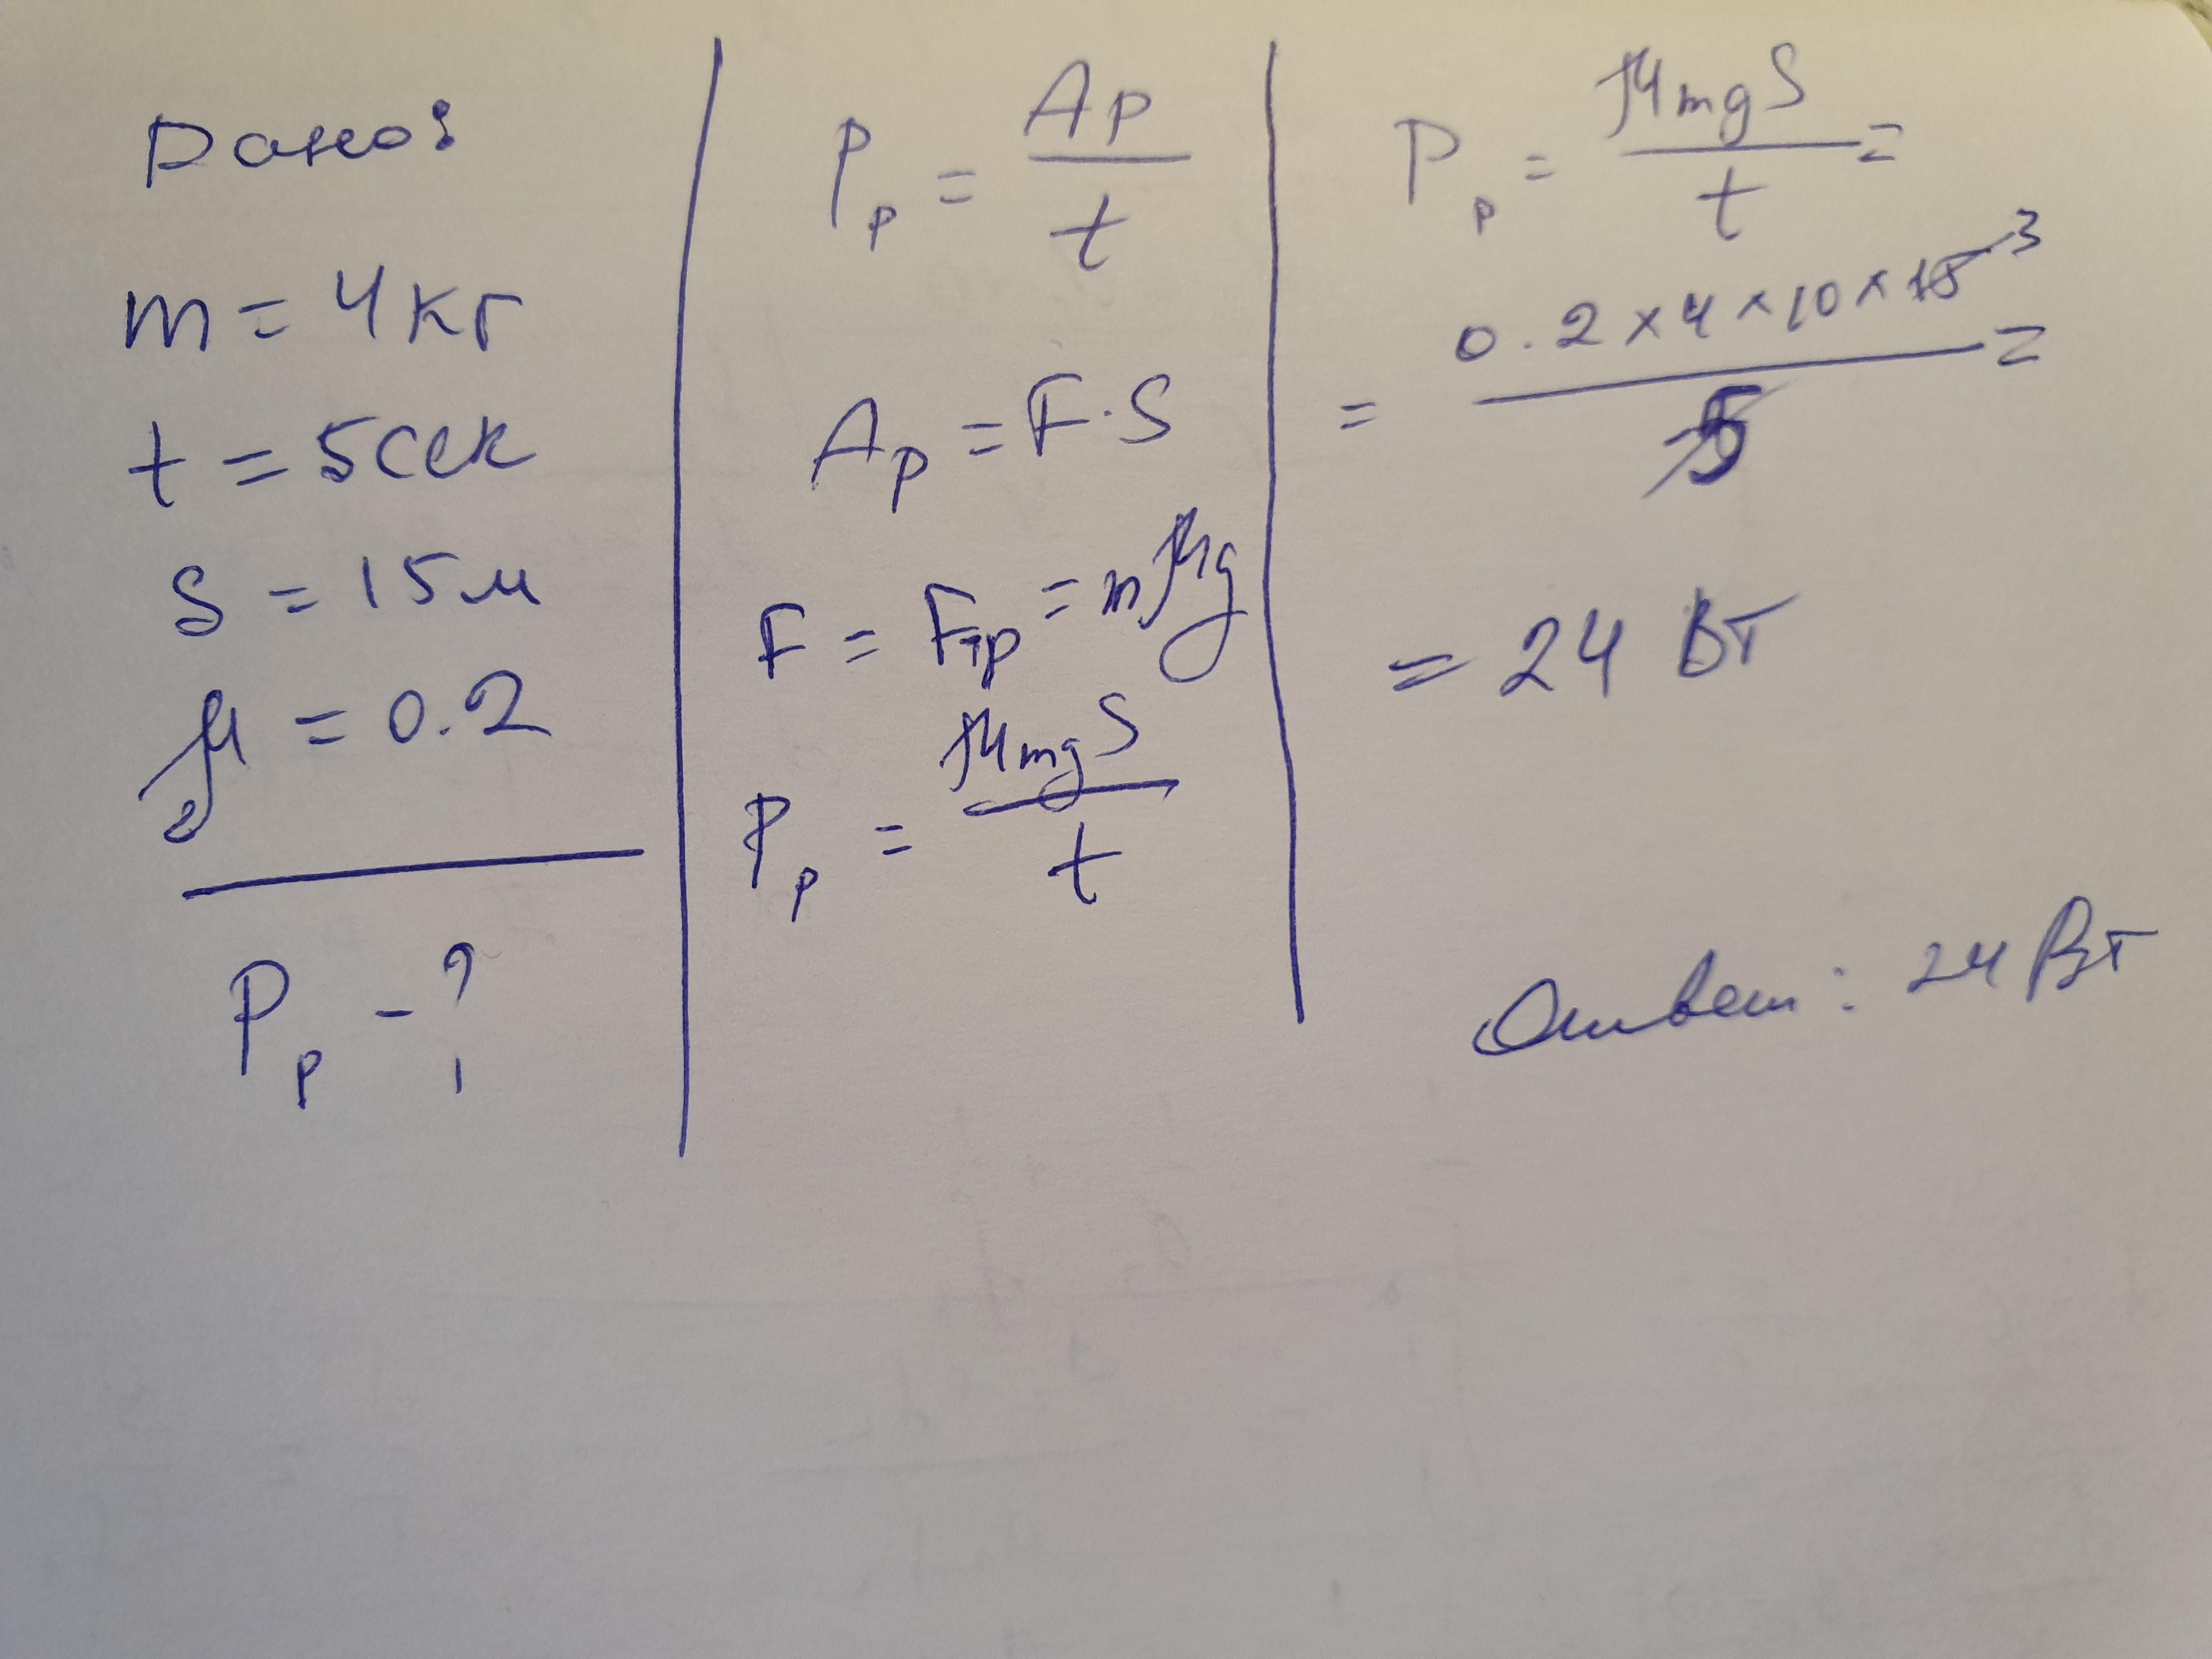 Дано:
m = 4кг
t = 5сек
S = 15м
μ = 0.2
Pр - ?
Pр = Aр / t
Aр = F·S
F = Fтр = mμg
Pр = μmgS / t
Pр = μmgS / t =
= 0.2 × 4 × 10 × 15 3 / 5 =
= 24 Вт
Ответ: 24 Вт